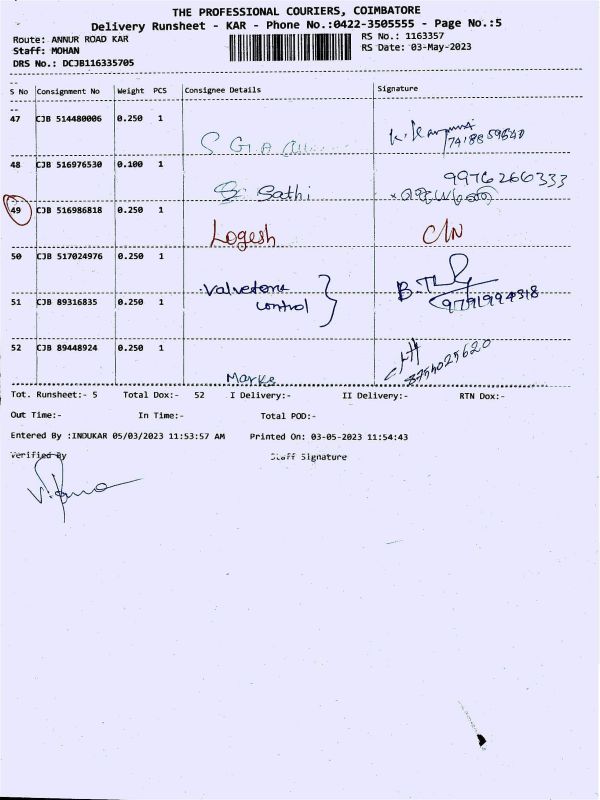 THE PROFESSIONAL COURIERS, COIMBATORE
Delivery Runsheet - KAR - Phone No.:0422-3505555 - Page No.:5
Route: ANNUR ROAD KAR RS No.: 1163357
Staff: MOHAN RS Date: 03-May-2023
DRS No.: DCJB116335705
S No Consignment No Weight PCS Consignee Details Signature
47 CJB 514480006 0.250 1
48 CJB 516976530 0.100 1 Sathi 9976266333
49 CJB 516986818 0.250 1 Logesh C/N
50 CJB 517024976 0.250 1 Valvetons
control
51 CJB 89316835 0.250 1
52 CJB 89448924 0.250 1 Marks
Tot. Runsheet:- 5 Total Dox:- 52 I Delivery:- II Delivery:- RTN Dox:-
Out Time:- In Time:- Total POD:-
Entered By :INDUKAR 05/03/2023 11:53:57 AM Printed On: 03-05-2023 11:54:43
Verified By Staff Signature